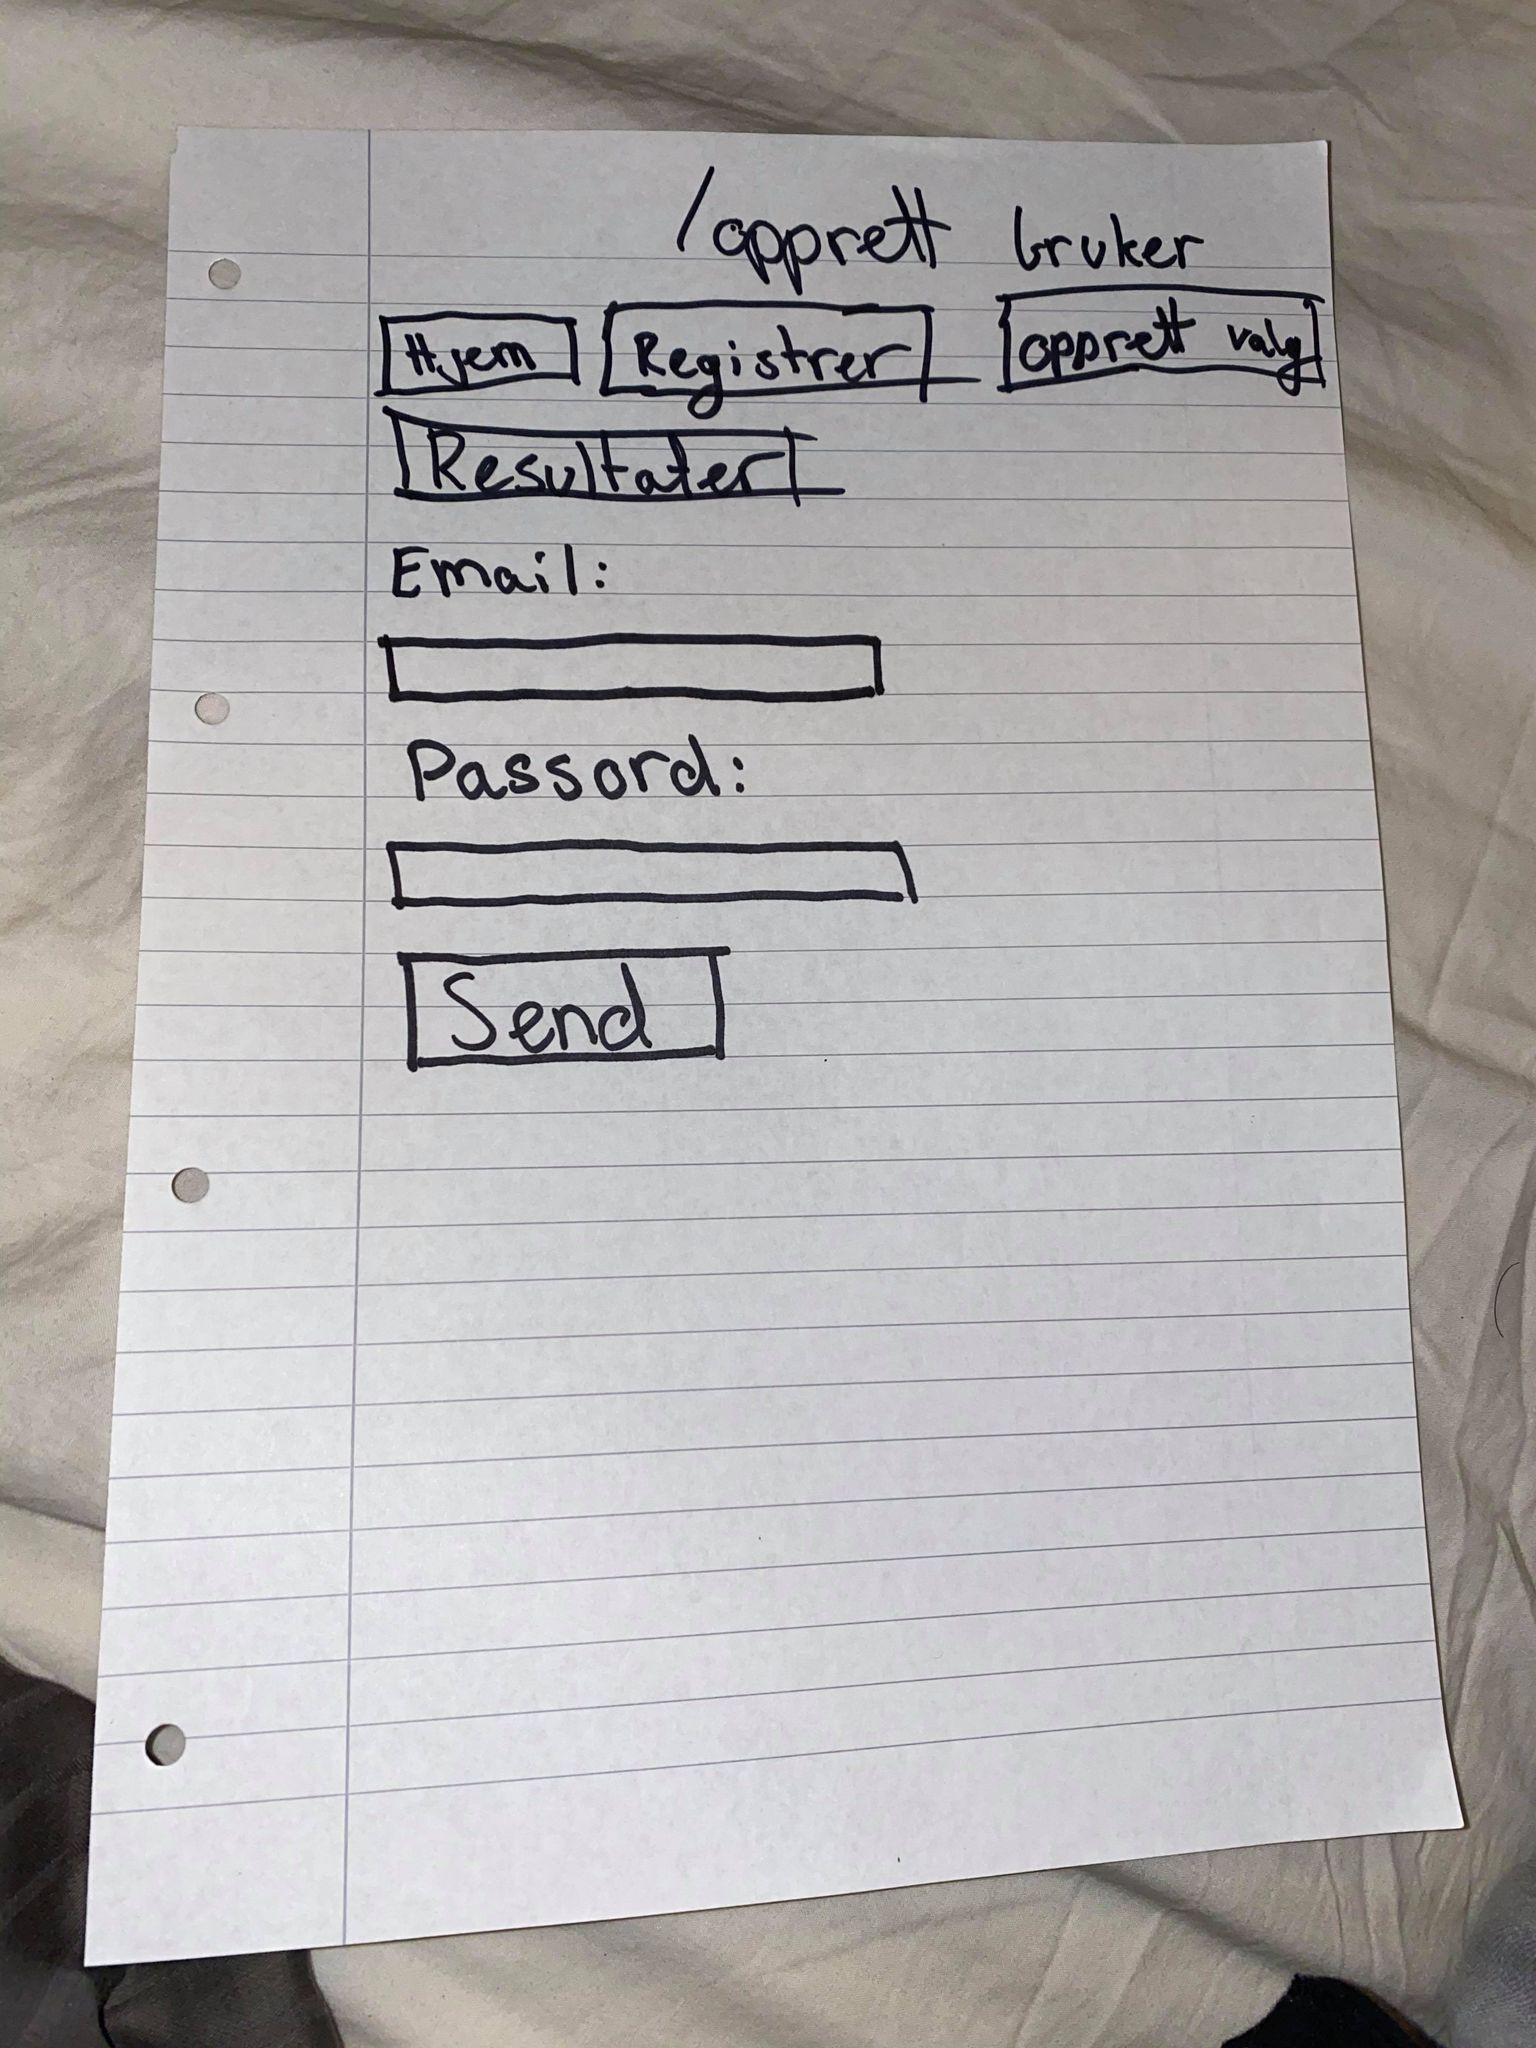 /opprett bruker
Hjem Registrer opprett valg
Resultater
Email:
Passord:
Send